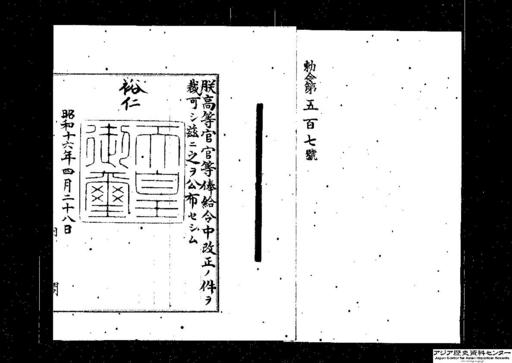 勅令第五百七號
朕高等官官等俸給令中改正ノ件ヲ
裁可シ茲ニ之ヲ公布セシム
裕仁
天皇
御璽
昭和十六年四月二十八日
アジア歴史資料センター
Japan Center for Asian Historical Records